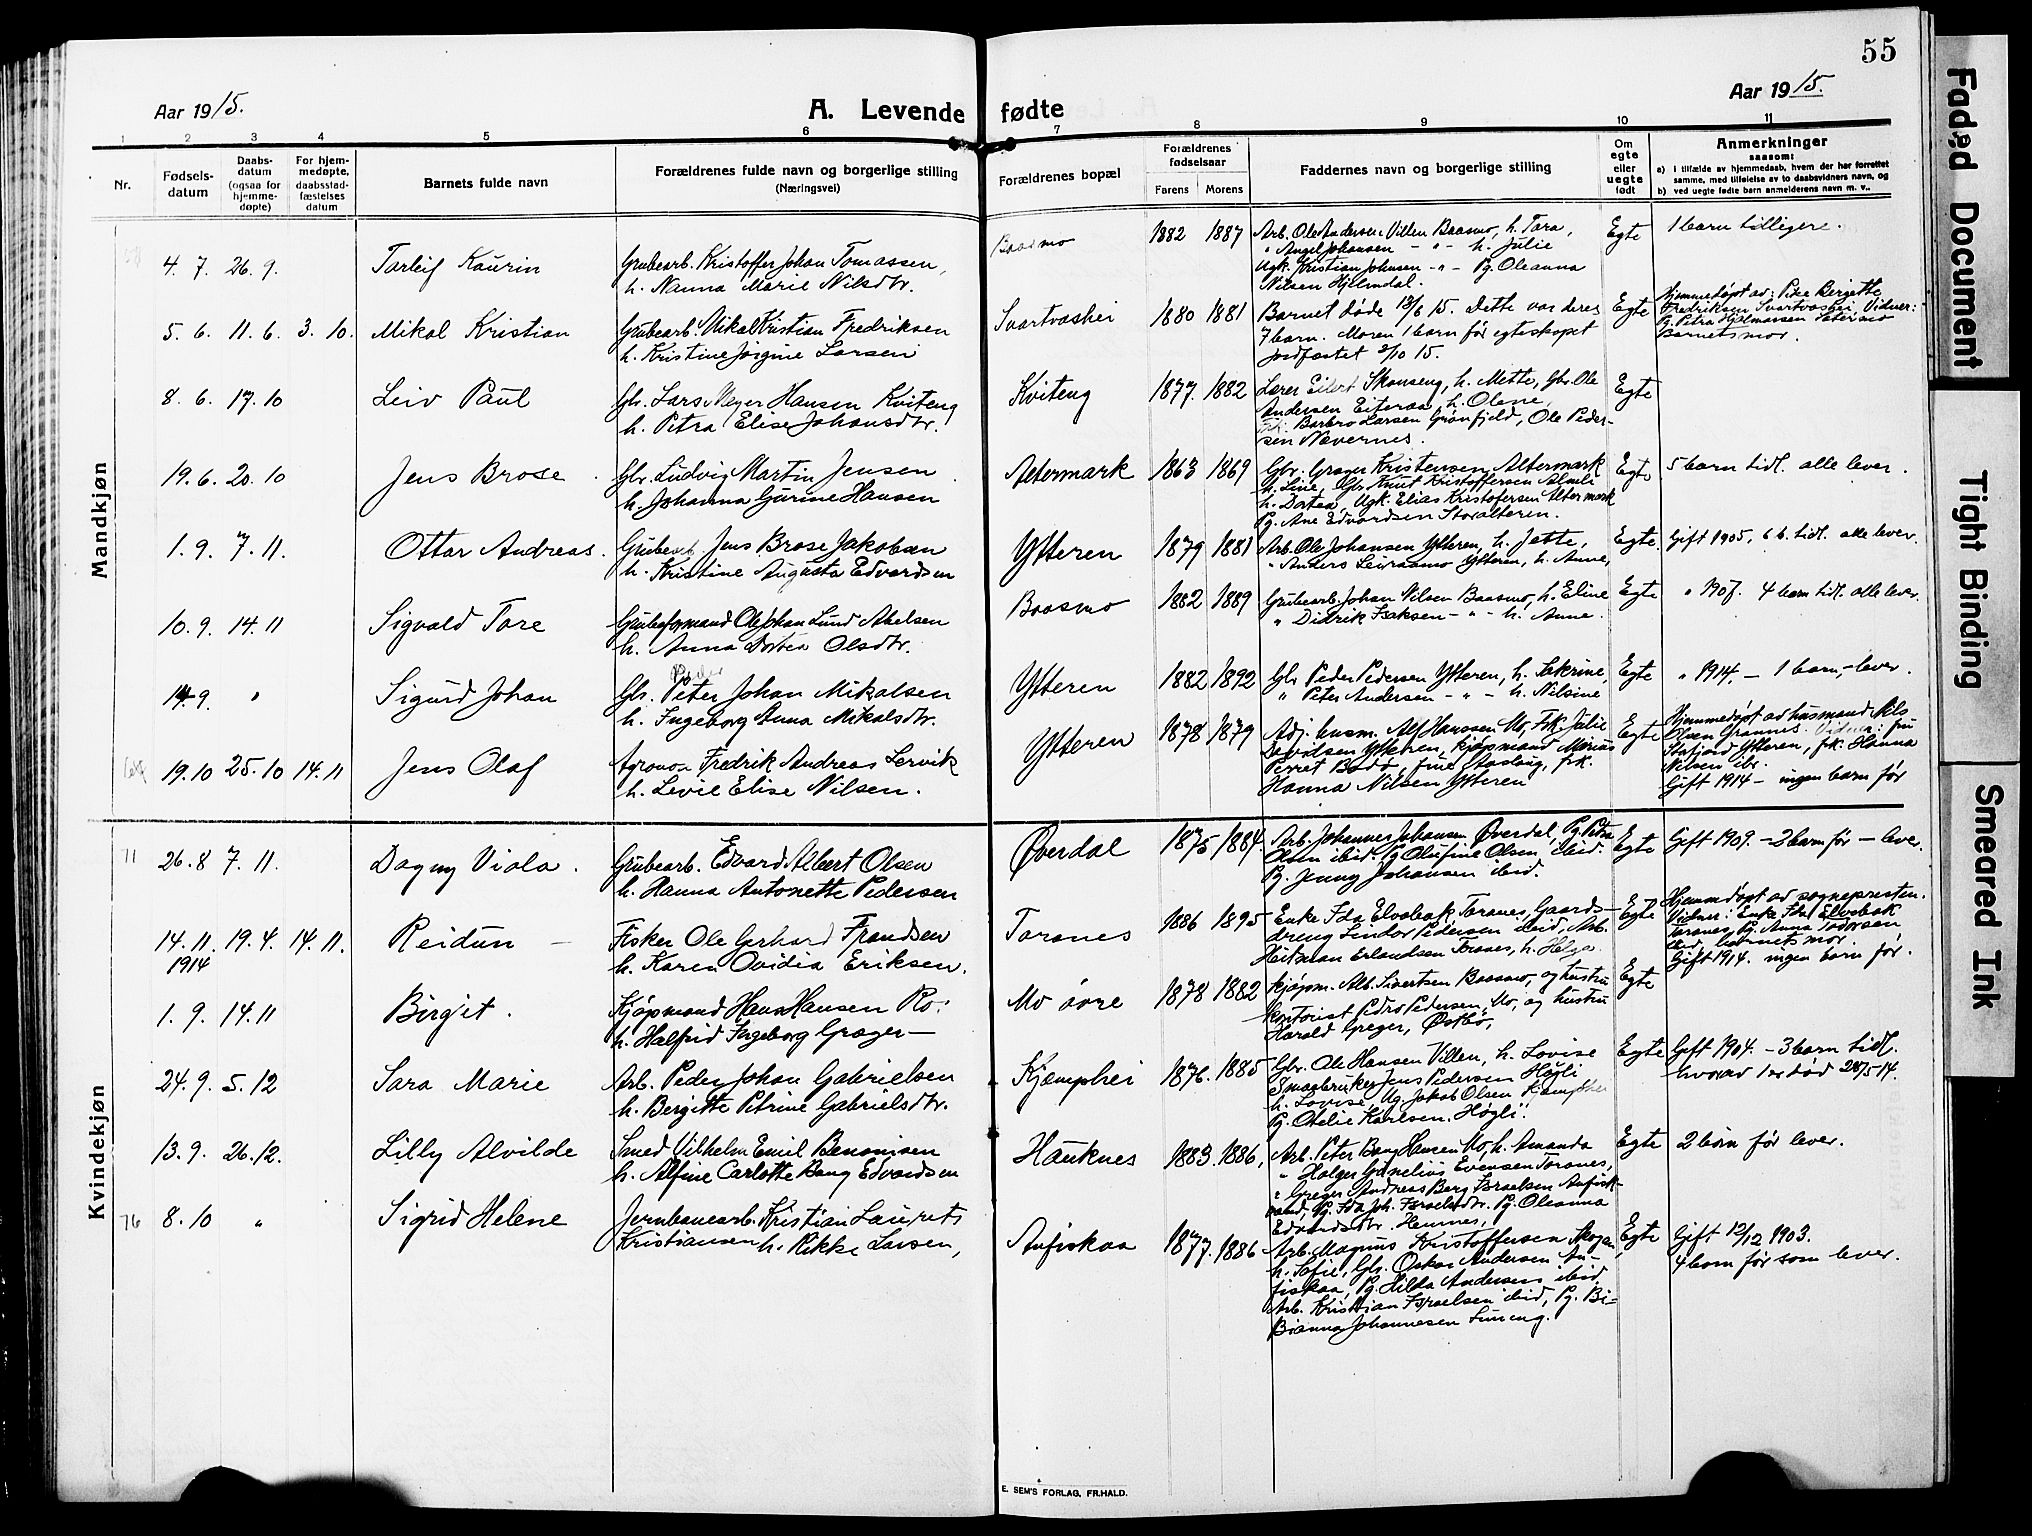 55
Aar 1915.
A. Levende fødte
Aar 1915.
1 2 3 4 5 6 7 8 9 10 11
Nr.
Fødsels-
datum
Daabs-
datum
(ogsaa for
hjemme-
døpte)
For hjem-
medøpte,
daabsstad-
fæstelses
datum
Barnets fulde navn
Forældrenes fulde navn og borgerlige stilling
(Næringsvei)
Forældrenes bopæl
Forældrenes
fødselsaar
Farens Morens
Faddernes navn og borgerlige stilling
Om
egte
eller
uegte
født
Anmerkninger
saasom:
a) I tilfælde av hjemmedaab, hvem der har forrettet
samme, med tilføielse av to daabsvidners navn, og
b) ved uegte fødte barn anmelderens navn m. v..
Mandkjøn
4. 7. 26. 9. Tarleif Kaurin
Grubearb. Kristoffer Johan Tomassen,
h. Nanna Marie Nilsdtr.
Baasmo 1882 1887
Arb. Ole Andersen Villen Baasmo, h. Tora,
" Angel Johansen - " - h. Julie
Ugk. Kristian Johnsen - " - Pg. Oleanna
Nilsen Hjelmdal.
Egte 1 barn tilligere.
5. 6. 11. 6. 3. 10. Mikal Kristian
Grubearb. Mikal Kristian Fredriksen
h. Kristine Jørgine Larsen
Svartvashei 1880 1881
Barnet døde 13/6 15. Dette var deres
7 barn. Moren 1 barn før egteskapet
Jordfæstet 3/10 15.
Egte
Hjemmedøpt av: Pike Bergette
Fredriksen Svartvashei, Vidner:
Pg. Petra Hjelmansen Sætermo
Barnets mor.
8. 6. 17. 10 Leiv Paul
Gbr. Lars Meyer Hansen Kviteng
h. Petra Elise Johansdtr.
Kviteng 1877. 1882
Lærer Eilert Skonseng, h. Mette, Gbr. Ole
Andersen Eiteraa, h. Olene,
Barbro Larsen Grønfjeld, Ole Peder-
sen Nævernes.
Egte
19. 6. 20. 10 Jens Brose.
Gbr. Ludvig Martin Jensen
h. Johanna Gurine Hansen
Altermark 1863 1869
Gbr. Grager Kristensen Altermark
h. Line, Gbr. Knut Kristoffersen Almli
h. Dortea, Ugk. Elias Kristofersen Altermark
Pg. Ane Edvardsen Storalteren.
Egte 5 barn tidl. alle lever.
1. 9. 7. 11. Ottar Andreas.
Grubearb. Jens Brose Jakobsen
h. Kristine Augusta Edvardsen
Ytteren 1879 1881
Arb. Ole Johansen Ytteren, h. Jette,
" Anders Leiraamo Ytteren, h. Anne,
Egte. Gift 1905, 6 b. tidl. alle lever.
10. 9. 14. 11 Sigvald Tore
Grubeformand Ole Johan Lund Abelsen
h. Anna Dortea Olsdtr.
Baasmo 1882 1889
Grubearb. Johan Nilsen Baasmo, h. Eline
" Didrik Isaksen - " - h. Anne.
Egte " 1907. 4 barn tidl. alle lever.
14. 9 " Sigurd Johan
Gbr. Peter Johan Mikalsen
h. Ingeborg Anna Mikalsdtr.
Ytteren 1882 1892
Gbr Peder Pedersen Ytteren, h. Sekrine,
" Peter Andersen - " - h. Nilsine
Egte " 1914. - 1 barn, - lever.
19. 10 25. 10 14. 11 Jens Olaf
Agronom Fredrik Andreas Lervik
h. Levie Elise Nilsen.
Ytteren 1878 1879
Adj. husm. Alf Hanssen Mo, Frk. Julie
Davidsen Ytteren, kjøpmand Marius
Perret Bodø, frue Aaslaug, frk.
Hanna Nilsen Ytteren
Egte
Hjemmedøpt av husmand Nils
Olsen Grannes. Vidner: fru
Storjord Ytteren, frk. Hanna
Nilsen ibr.
Gift 1914 - ingen barn før
Kvindekjøn
71 26. 8 7. 11. Dagny Viola.
Grubearb. Edvard Albert Olsen
h. Hanna Antonette Pedersen
Øverdal 1875 1884.
Arb. Johannes Johansen Øverdal, Pg. Petra
Olsen ibid. Pg. Olufine Olsen ibid.
Pg. Jenny Johansen ibid.
Egte Gift 1909. - 2 barn før - lever.
14. 11. 19. 4. 14. 11. Reidun -
1914
Fisker Ole Gerhard Frandsen
h. Karen Ovidia Eriksen.
Toranes 1886 1895
Enke Ida Elvebak Toranes, Gaards-
dreng Lindor Pedersen ibid, Arb.
Heitman Erlandsen Toranes, h. Helga.
Egte
Hjemmedøpt av sognepresten.
Vidner: Enke Ida Elvebak
Toranes, Pg. Anna Todorsen
ibid, barnets mor.
Gift 1914. ingen barn før.
1. 9. 14. 11 Birgit.
Kjøpmand Hans Hansen Ro:
h. Halfrid Ingeborg Grager -
Mo øvre 1878 1882
Kjøpm. Alb. Sivertsen Baasmo, og hustru
Kontorist Pedro Pedersen, Mo, og hustru
Harald Greger, Østbø,
Egte
24. 9. 5. 12 Sara Marie
Arb. Peder Johan Gabrielsen
h. Bergitte Petrine Gabrielsdtr.
Kjæmphei 1876. 1885
Gbr. Ole Hansen Villen, h. Lovise
Smaabruker Jens Pedersen Høgli
h. Lovise, Ug. Jakob Olsen Kæmphei
Pg. Otelie Karlsen Høgli.
Egte Gift 1904. - 3 barn tidl.
hvorav 1 er død 28/5 14.
13. 9. 26. 12. Lilly Alvilde
Smed Vilhelm Emil Benonisen
h. Alfine Carlotte Bang Edvardsen
Hauknes 1883. 1886,
Arb. Peter Bang Hansen Mo, h. Amanda
" Holger Kornelius Evensen Toranes,
" Greger Andreas Berg Israelsen Anfisk-
vand, Pg. Ida Joh. Israelsdtr. Pg. Oleanna
Edvardsdtr. Hemnes,
Egte 2 barn før lever.
76 8. 10 " Sigrid Helene
Jernbanearb. Kristian Laurets
Kristiansen h. Rikke Larsen,
Anfiskaa 1877. 1886
Arb. Magnus Kristoffersen Skogan,
h. Sofie, Gbr. Oskar Andersen An-
fiskaa, Pg. Hilda Andersen ibid,
Arb. Kristian Israelsen ibid, Pg. Bi-
Bianna Johannesen Limeng.
Egte Gift 12/12 1903.
4 barn før som lever.
E. SEM'S FORLAG, FR.HALD.
Faded Document
Tight Binding
Smeared Ink